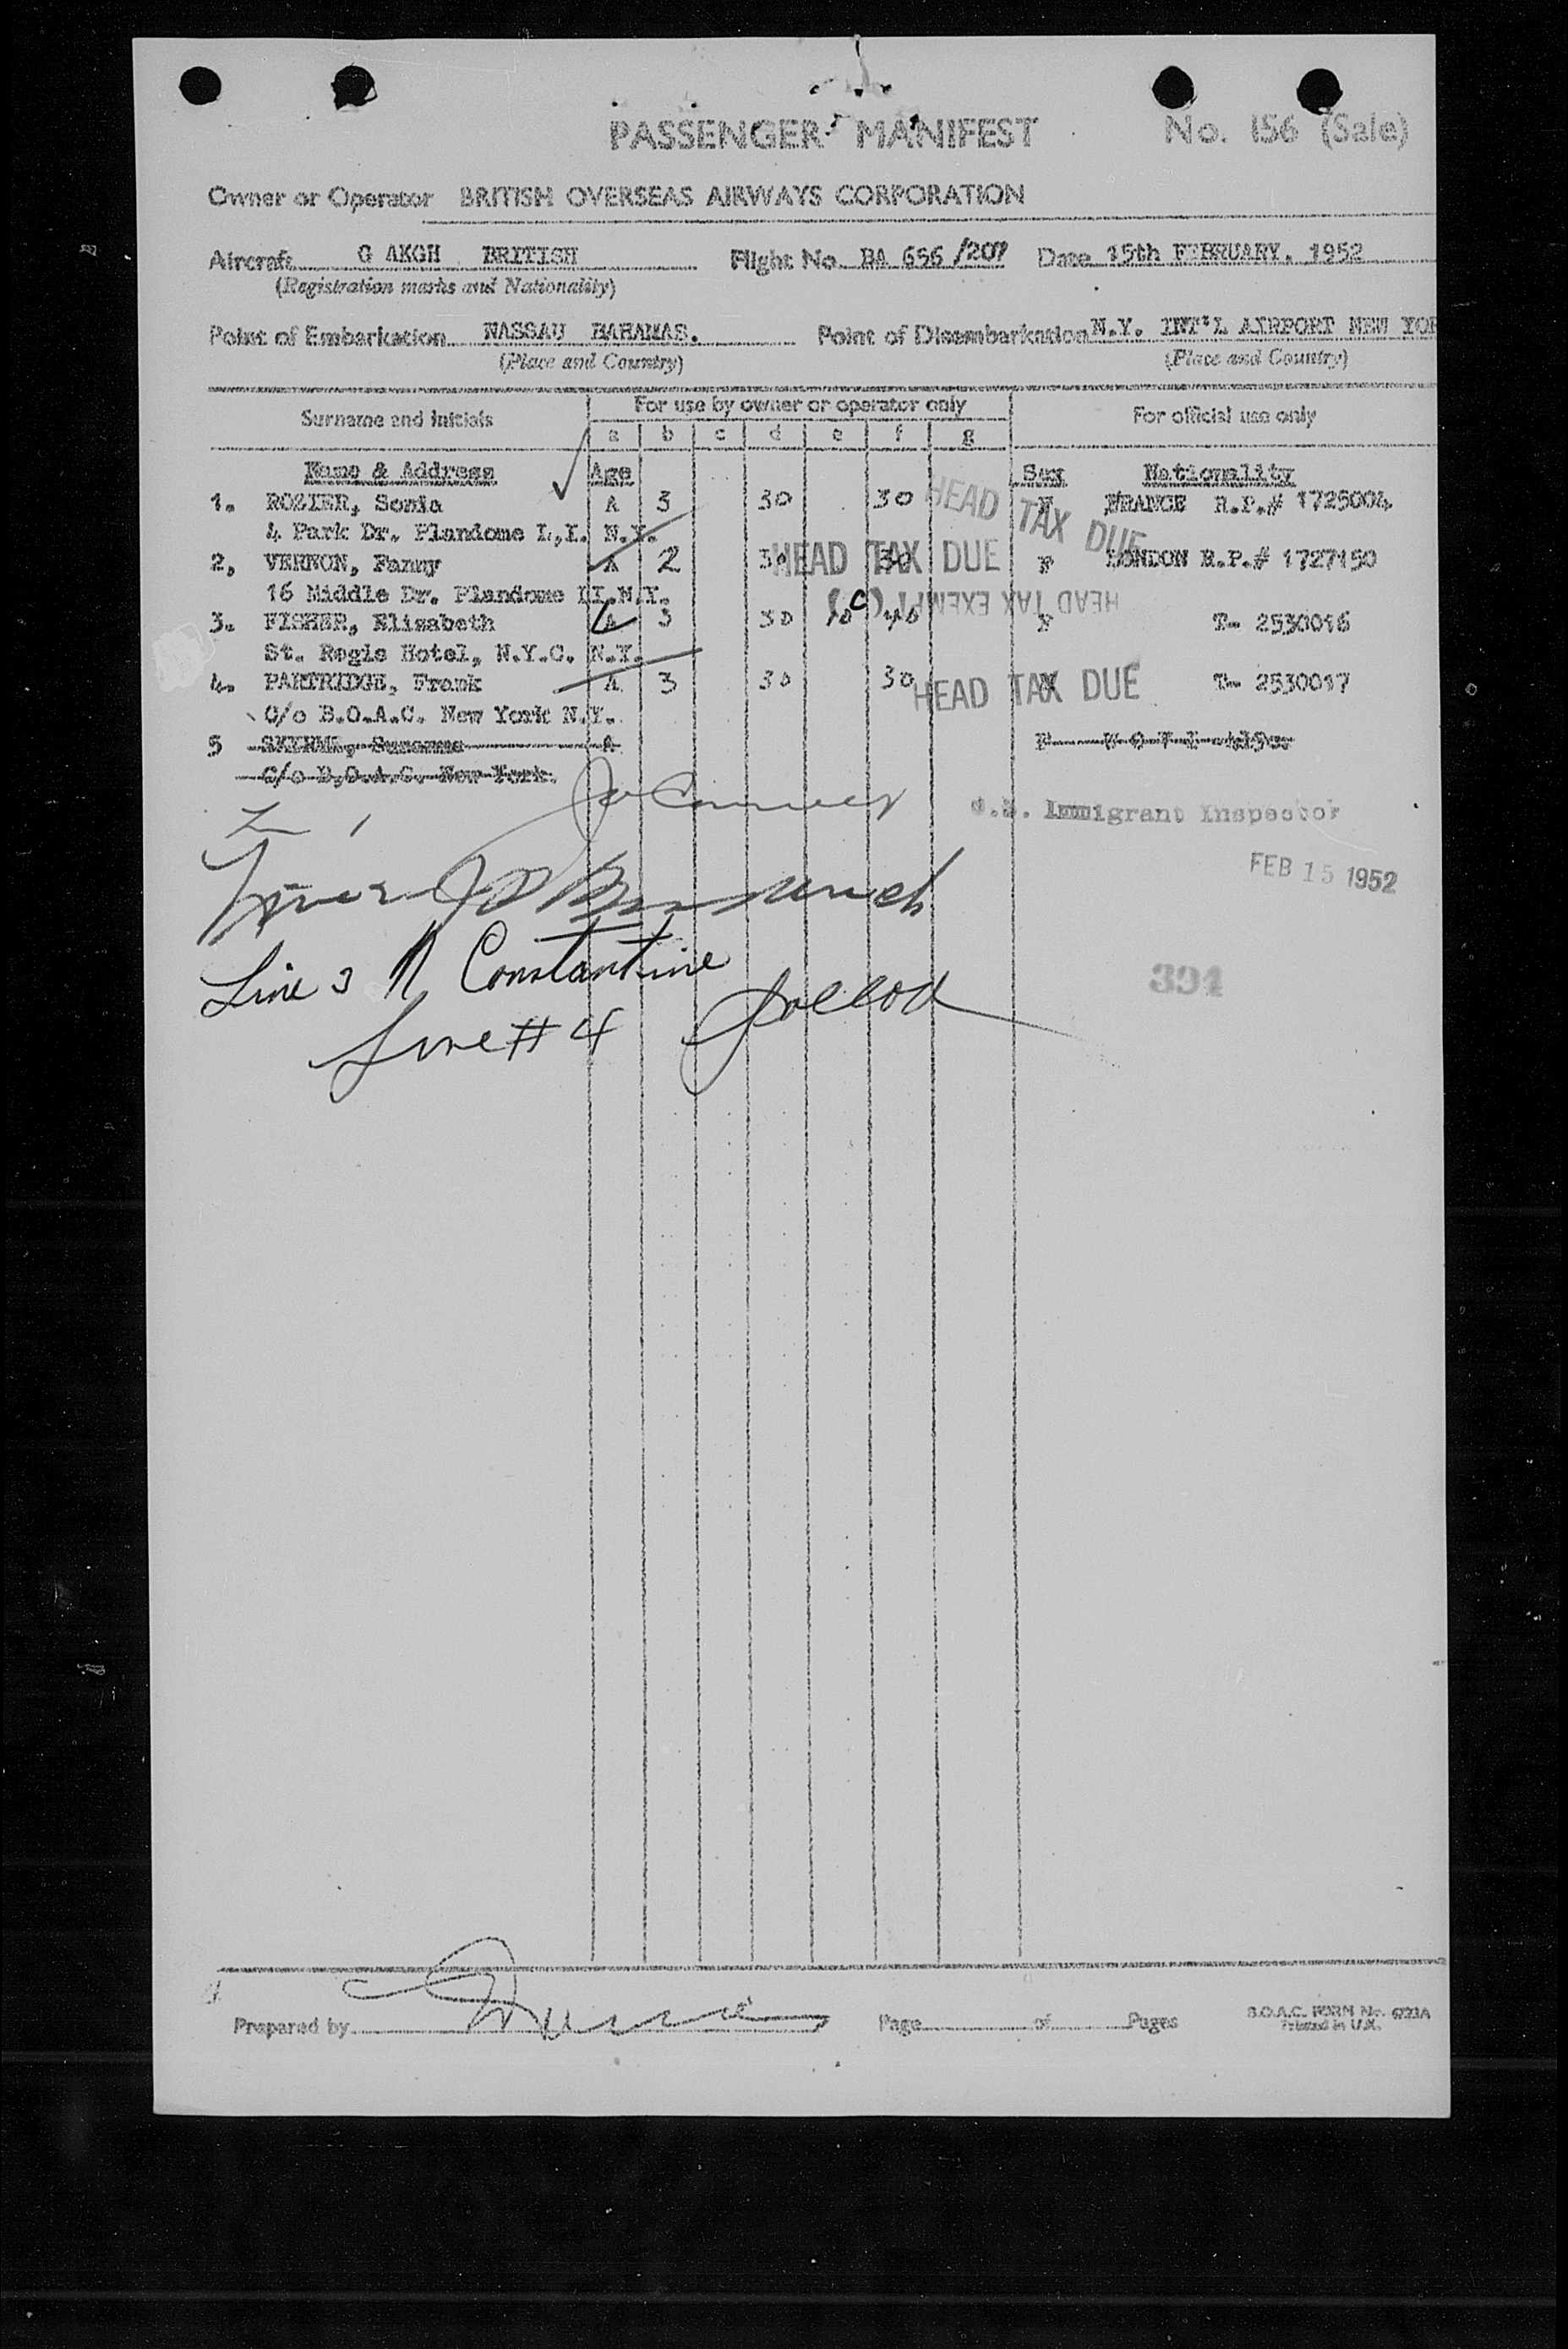 PASSENGER MANIFEST No. 156 (Sale)
Owner or Operator BRITISH OVERSEAS AIRWAYS CORPORATION
Aircraft G AKGH BRITISH Flight No. BA 656/207 Date 15th FEBRUARY. 1952
(Registration marks and Nationality)
Point of Embarkation NASSAU BAHAMAS. Point of Disembarkation N.Y. INT'L AIRPORT NEW YOR
(Place and Country) (Place and Country)
Surname and Initials For use by owner or operator only For official use only
a b c d e f g
Name & Address Age Sex Nationality
1. ROZIER, Sonia A 3 30 30 HEAD TAX DUE F FRANCE R.P.# 1725004
4 Park Dr. Plandome L.I. N.Y.
2, VERNON, Fanny A 2 30 30 HEAD TAX DUE F LONDON R.P.# 1727150
16 Middle Dr. Plandome LI.N.Y. HEAD TAX EXEMPT
3. FISHER, Elisabeth A 3 30 10 40 F T- 2530016
St. Regis Hotel, N.Y.C. N.Y.
4. PARTRIDGE, Frank A 3 30 30 HEAD TAX DUE T- 2530017
C/o B.O.A.C. New York N.Y.
5 Suzanne A F
C/o B.O.A.C. New York.
U.S. Immigrant Inspector
FEB 15 1952
Line 3 N Constantine
394
Line # 4
Prepared by Page of Pages B.O.A.C. FORM No. 6221A
Printed in U.K.